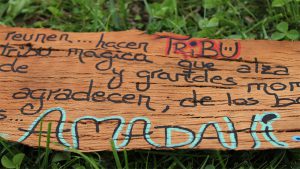 reunen... hacen TRIBU
tribu mágica que alza
de y grandes mom
agradecen, de las bo
AMADAHI